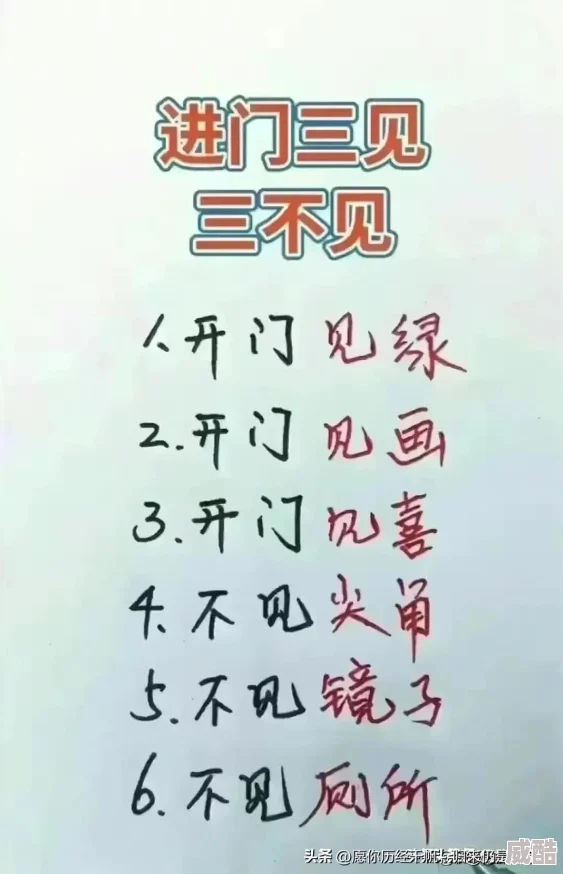 进门三见
三不见
1.开门见绿
2.开门见画
3.开门见喜
4.不见尖角
5.不见镜子
6.不见厕所
头条 @愿你历经